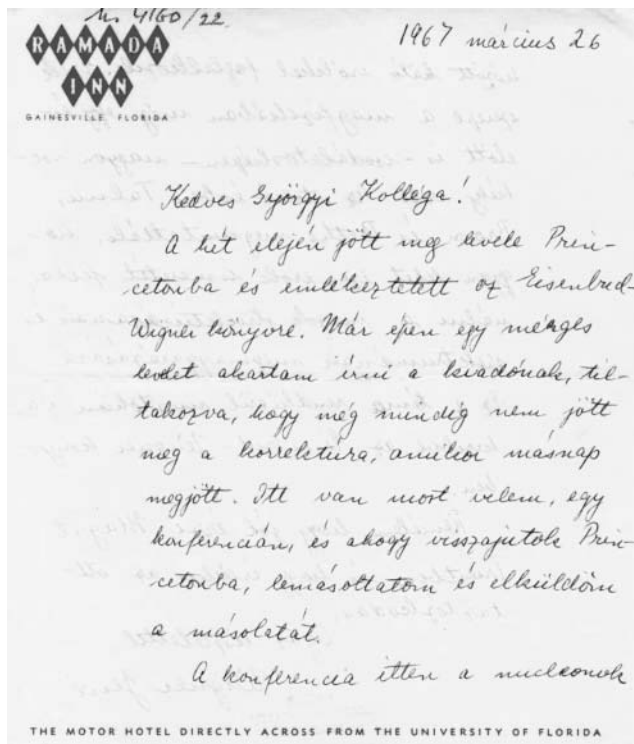 Ms 4160/22
RAMADA
INN
GAINESVILLE, FLORIDA
1967 március 26
Kedves Györgyi Kolléga!
A hét elején jött meg levele Prin-
cetonba és emlékeztetett az Eisenbud-
Wigner könyvre. Már épen egy mérges
levelet akartam írni a kiadónak, til-
takozva, hogy még mindég nem jött
meg a korrektúra, amikor másnap
megjött. Itt van most velem, egy
konferencián, és ahogy visszajutok Prin-
cetonba, lemásoltatom és elküldöm
a másolatát.
A konferencia itten a nucleonok
THE MOTOR HOTEL DIRECTLY ACROSS FROM THE UNIVERSITY OF FLORIDA